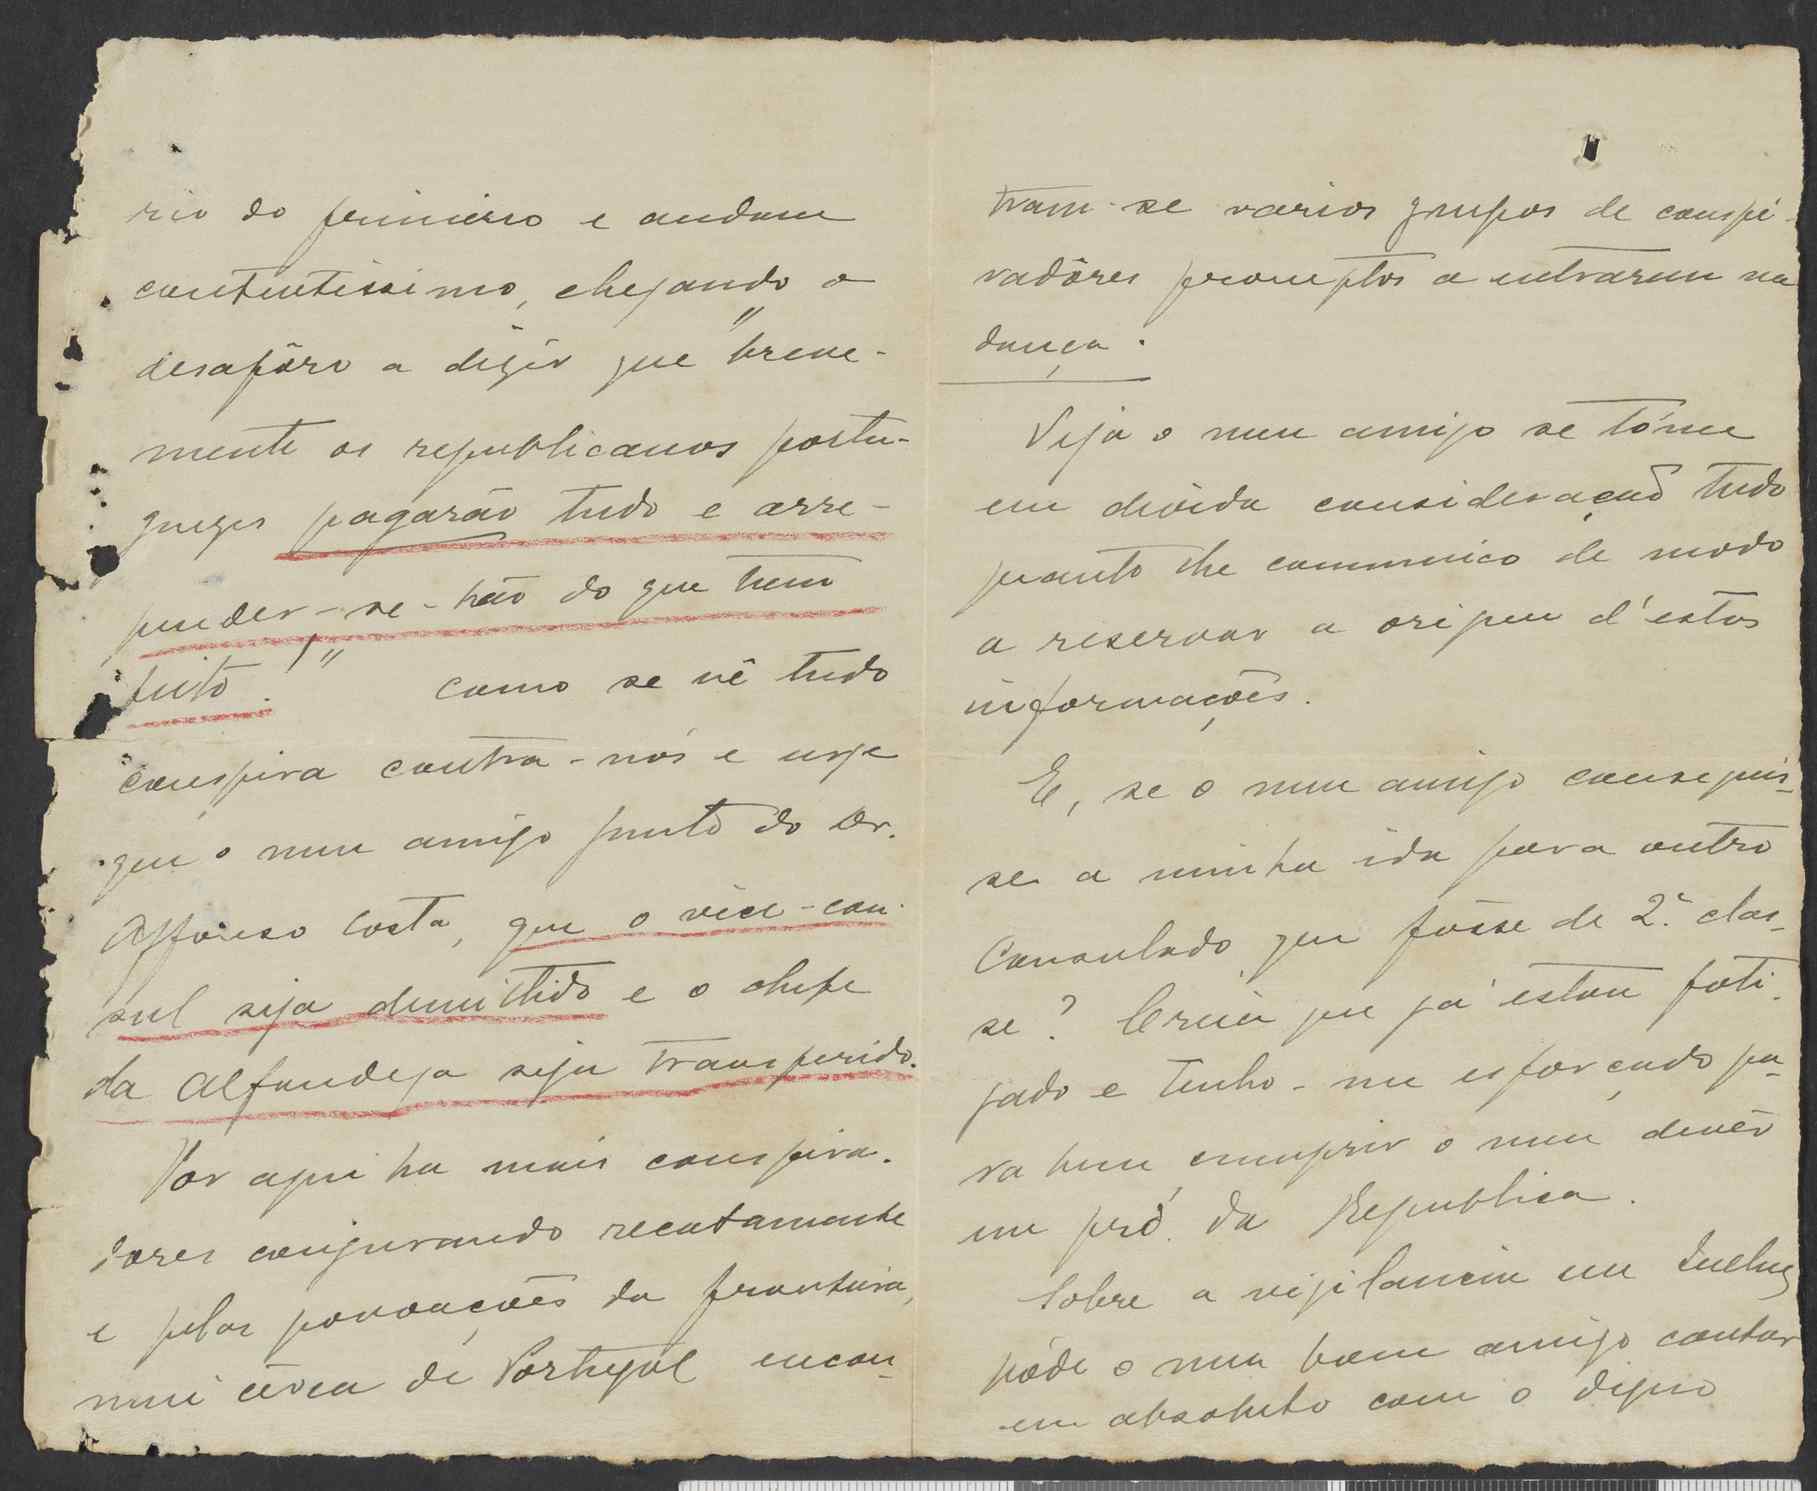 rio do primeiro e andam
contentissimo, chegando o
desafôro a dizêr que "breve-
mente os republicanos portu-
guezes pagarão tudo e arre-
pender-se-hão do que teem
feito." Como se vê tudo
conspira contra-nós e urje
que o meu amigo junto do Dr.
Affonso Costa, que o vice-con-
sul seja demittido e o chefe
da Alfandega seja transferido.
Por aqui ha mais conspira-
dores conjurando recatamente
e pelas povoações da fronteira,
mui cêrca de Portugal encon-
tram-se varios grupos de conspi-
radôres promptos a entrarem na
dança.
Veja o meu amigo se tóme
em devida consideração tudo
quanto lhe communico de modo
a reservar a origem d'estas
informações.
E, se o meu amigo conseguis-
se a minha ida para outro
Consulado que fôsse de 2.ª clas-
se? Creia que já estou fati-
gado e tenho-me esforçado pa-
ra bem cumprir o meu devêr
em pró da Republica.
Sobre a vigilancia em
póde o meu bom amigo contar
em absoluto com o digno